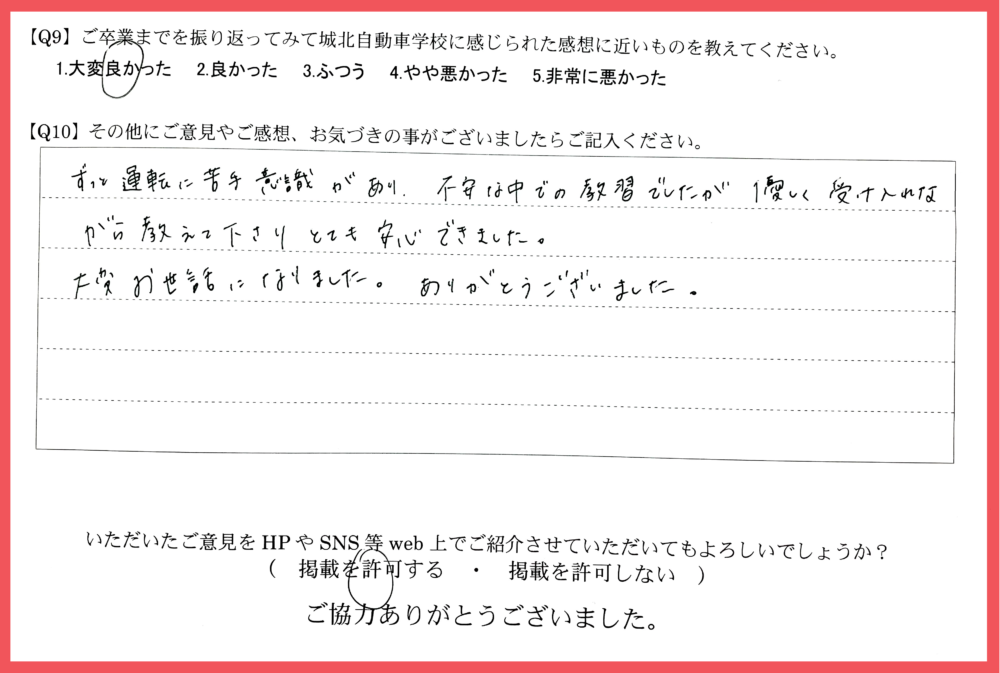 【Q9】ご卒業までを振り返ってみて城北自動車学校に感じられた感想に近いものを教えてください。
1.大変良かった 2.良かった 3.ふつう 4.やや悪かった 5.非常に悪かった
【Q10】その他にご意見やご感想、お気づきの事がございましたらご記入ください。
ずっと運転に苦手意識があり、不安な中での教習でしたが優しく受け入れな
がら教えて下さりとても安心できました。
大変お世話になりました。ありがとうございました。
いただいたご意見をHPやSNS等web上でご紹介させていただいてもよろしいでしょうか？
（ 掲載を許可する ・ 掲載を許可しない ）
ご協力ありがとうございました。